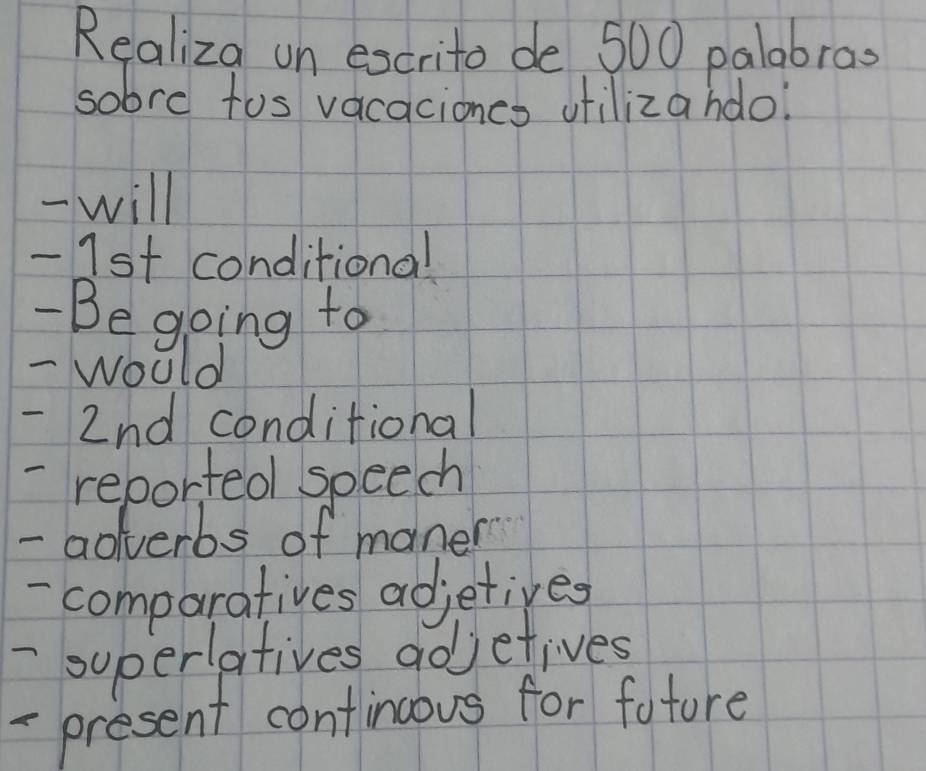 Realiza un escrito de 500 palabras
sobre tus vacaciones utilizando:
- will
- 1st conditional
- Be going to
- would
- 2nd conditional
- reported speech
- adverbs of maner
- comparatives adjetives
- superlatives adjetives
- present continuous for future